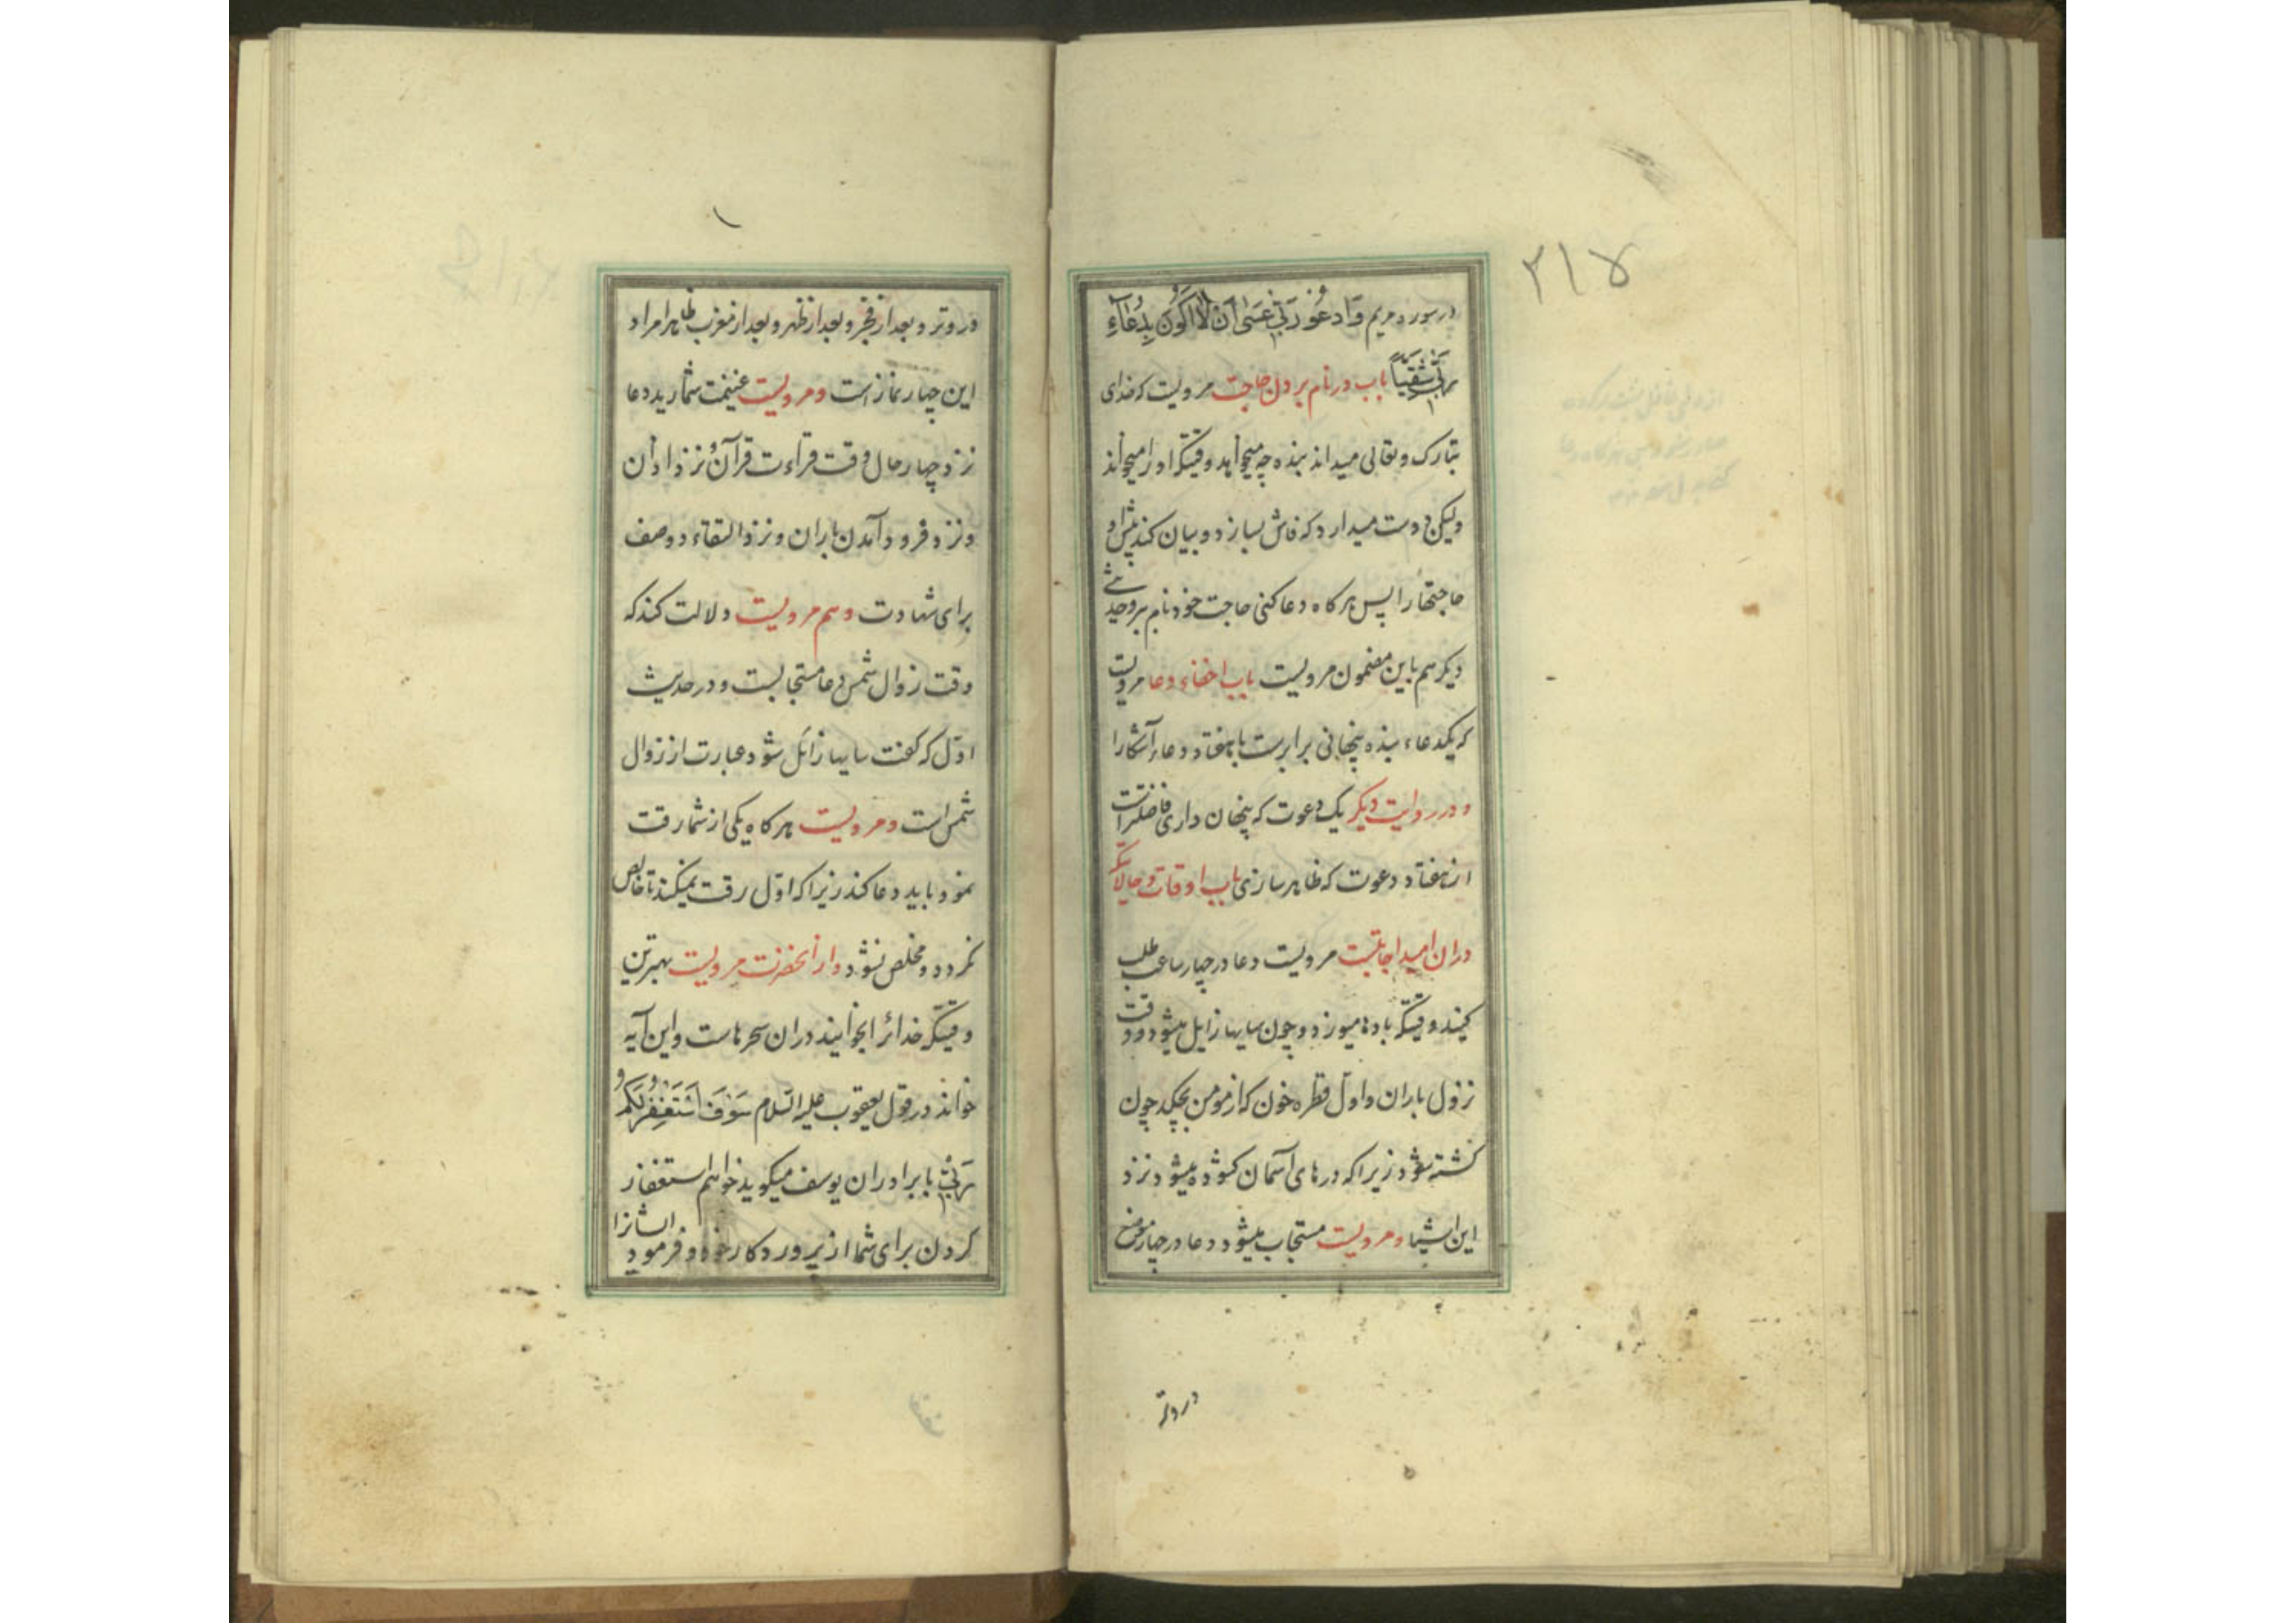 ۲۱۷
در سوره مریم وَادعُو رَبِّي عَسٰى اَن لَا اَكُونَ بِدُعَاءِ
رَبِّي شَقِيّاً باب در نام بردن حاجت مرویست که خدای
تبارک و تعالی میداند بنده چه میخواهد وقتیکه او را میخواند
ولیکن دوست میدارد که فاش بسازد و بیان کند پیش او
حاجتها را پس هر کاه دعا کنی حاجت خود نام ببر و حدیثی
دیکر هم باین مضمون مرویست باب اخفاء دعا مرویست
که یکدعاء بنده پنهانی برابرست با هفتاد دعاء آشکارا
و در روایت دیکر یک دعوت که پنهان داری فاضلتر است
از هفتاد دعوت که ظاهر سازی باب اوقات و حالاتیکه
دران امید اجابتست مرویست دعا در چهار ساعت طلب
کنید وقتیکه بادها میوزد و چون سایها زایل میشود و وقت
نزول باران و اول قطره خون که از مومن بچکد چون
کشته شود زیرا که درهای آسمان کشوده میشود نزد
این اشیا و مرویست مستجاب میشود دعا در چهار موضع
در وتر
۱
در وتر و بعد از فجر و بعد از ظهر و بعد از مغرب ظاهرا مراد
این چهار نماز است و مرویست غنیمت شمارید دعا
نزد چهار حال وقت قراءت قرآن و نزد اذان
و نزد فرود آمدن باران و نزد التقاء دو صف
برای شهادت و هم مرویست دلالت کند که
وقت زوال شمس دعا مستجابست و در حدیث
اول که کفت سایها زائل شود عبارت از زوال
شمس است و مرویست هر کاه یکی از شما رقت
نمود باید دعا کند زیرا که اول رقت نمیکند تا خالص
نکردد و مخلص نشود و از آنحضرت مرویست بهترین
وقتیکه خدا را بخوانید دران سحرهاست و این آیه
خواند در قول یعقوب علیه السلام سَوفَ اَستَغفِرُ لَكُم
رَبِّي با برادران یوسف میکوید خواهم استغفار
کردن برای شما از پرورد کار خود و فرمود ایشانرا